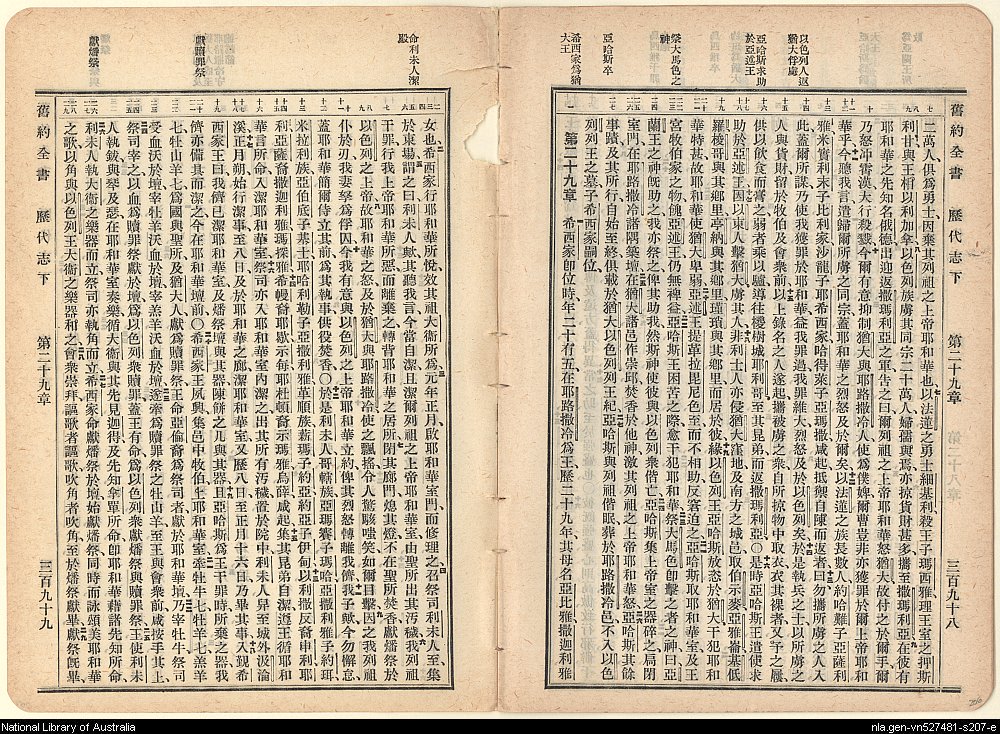 舊約全書 歷代志下 第二十九章 三百九十八
以色列人返猶大俘虜
亞哈斯求助於亞述王
祭大馬色之神
亞哈斯卒
希西家爲猶大王
二萬人俱爲勇士因棄其列祖之上帝耶和華也以法蓮之勇士細基利殺王子瑪西雅理王室之押斯
利甘與王相以利加拿以色列族虜其同宗二十萬人婦孺與焉亦掠貨財甚多攜至撒瑪利亞在彼有
耶和華之先知名俄德出迎返撒瑪利亞之軍告之曰爾列祖之上帝耶和華怒猶大故付之於爾手爾
乃怒冲霄漢大行殺戮今爾有意抑制猶大與耶路撒冷人使爲僕婢爾曹豈非亦獲罪於爾上帝耶和
華乎今聽我言遣歸爾所虜之同宗蓋耶和華之烈怒及於爾矣以法蓮之族長數人約哈難子亞薩利
雅米實利末子比利家沙龍子耶希西家哈得萊子亞瑪撒咸起抵禦自陳而返者曰勿攜所虜之人入
此蓋爾所謀乃使我獲罪於耶和華益我罪過我罪維大烈怒及於以色列矣於是執兵之士以所虜之
人與貨財留於牧伯及會衆前以上錄名之人遂起攜被虜之衆自所掠物中取衣衣裸者又予之履
供以飲食而膏之弱者乘以驢導往椶樹城耶利哥至其昆弟而返撒瑪利亞〇是時亞哈斯王遣使求
助於亞述王因以東人擊猶大虜其人非利士人亦侵猶大窪地及南方之城邑取伯示麥亞雅崙基低
羅梭哥與其鄉里亭納與其鄉里瑾瑣與其鄉里而居於彼緣以色列王亞哈斯放恣於猶大干犯耶和
華特甚故耶和華使猶大卑弱亞述王提革拉毘尼色至而不相助反窘迫之亞哈斯取耶和華室及王
宮牧伯家之物餽亞述王仍無裨益亞哈斯王困苦之際愈干犯耶和華祭大馬色卽擊之者之神曰亞
蘭王之神旣助之我亦祭之俾其助我然斯神使彼與以色列衆偕亡亞哈斯集上帝室之器碎之扃閉
室門在耶路撒冷諸隅築壇在猶大諸邑作崇邱焚香於他神激其列祖之上帝耶和華怒亞哈斯其餘
事蹟及其所行自始至終俱載於猶大以色列列王紀亞哈斯與列祖偕眠葬於耶路撒冷邑不入以色
列列王之墓子希西家嗣位
第二十九章 希西家卽位時年二十有五在耶路撒冷爲王歷二十九年其母名亞比雅撒迦利雅
命利未人潔殿
獻贖罪祭
獻燔祭
女也希西家行耶和華所悅效其祖大衞所爲元年正月啟耶和華室門而修理之召祭司利未人至集
於東場謂之曰利未人歟其聽我言今當自潔且潔爾列祖之上帝耶和華室由聖所出其汚穢我列祖
干罪行我上帝耶和華所惡而離棄之轉背耶和華之居所閉其廊門熄其燈不在聖所焚香獻燔祭於
以色列之上帝故耶和華之怒及於猶大與耶路撒冷使之飄搖令人驚駭嗤笑如爾目擊因之我列祖
仆於刃我妻孥爲俘囚今我有意與以色列之上帝耶和華立約俾其烈怒轉離我儕我子歟今勿懈怠
蓋耶和華簡爾侍立其前爲其執事供役焚香〇於是利未人哥轄族亞瑪賽子瑪哈亞撒利雅子約珥
米拉利族亞伯底子基士耶哈利勒子亞撒利雅革順族薪瑪子約亞約亞子伊甸以利撒反裔申利耶
利亞薩裔撒迦利雅瑪探雅希幔裔耶歇示每耶杜頓裔示瑪雅烏薛咸起集其昆弟自潔遵王循耶和
華言所命入潔耶和華室祭司亦入耶和華室內潔之出其所有汚穢置於院中利未人舁至城外汲淪
溪正月朔始行潔事至八日及於耶和華之廊潔耶和華室又歷八日至正月十六日乃畢其事入覲希
西家王曰我儕已潔耶和華室及燔祭壇與其器陳餅之几與其器且亞哈斯爲王干罪時所棄之器我
儕亦備具而潔之今在耶和華壇前〇希西家王夙興集邑中牧伯上耶和華室牽牡牛七牡羊七羔羊
七牡山羊七爲國與聖所及猶大人獻爲贖罪祭王命亞倫裔爲祭司者獻於耶和華壇乃宰牡牛祭司
受血沃於壇宰牡羊沃血於壇宰羔羊沃血於壇遂牽爲贖罪祭之牡山羊至王與會衆前咸按手其上
祭司宰之以血爲贖罪祭獻於壇爲以色列衆贖罪蓋王有命爲以色列衆獻燔祭與贖罪祭王使利未
人執鈸與琴及瑟在耶和華室奏樂循大衞與其先見迦得及先知拿單所命卽耶和華藉諸先知所命
利未人執大衞之樂器而立祭司亦執角而立希西家命獻燔祭於壇始獻燔祭同時而詠頌美耶和華
之歌以角與以色列王大衞之樂器和之會衆崇拜謳歌者謳歌吹角者吹角至於燔祭獻畢獻祭旣畢
舊約全書 歷代志下 第二十九章 三百九十九
National Library of Australia
nla.gen-vn527481-s207-e